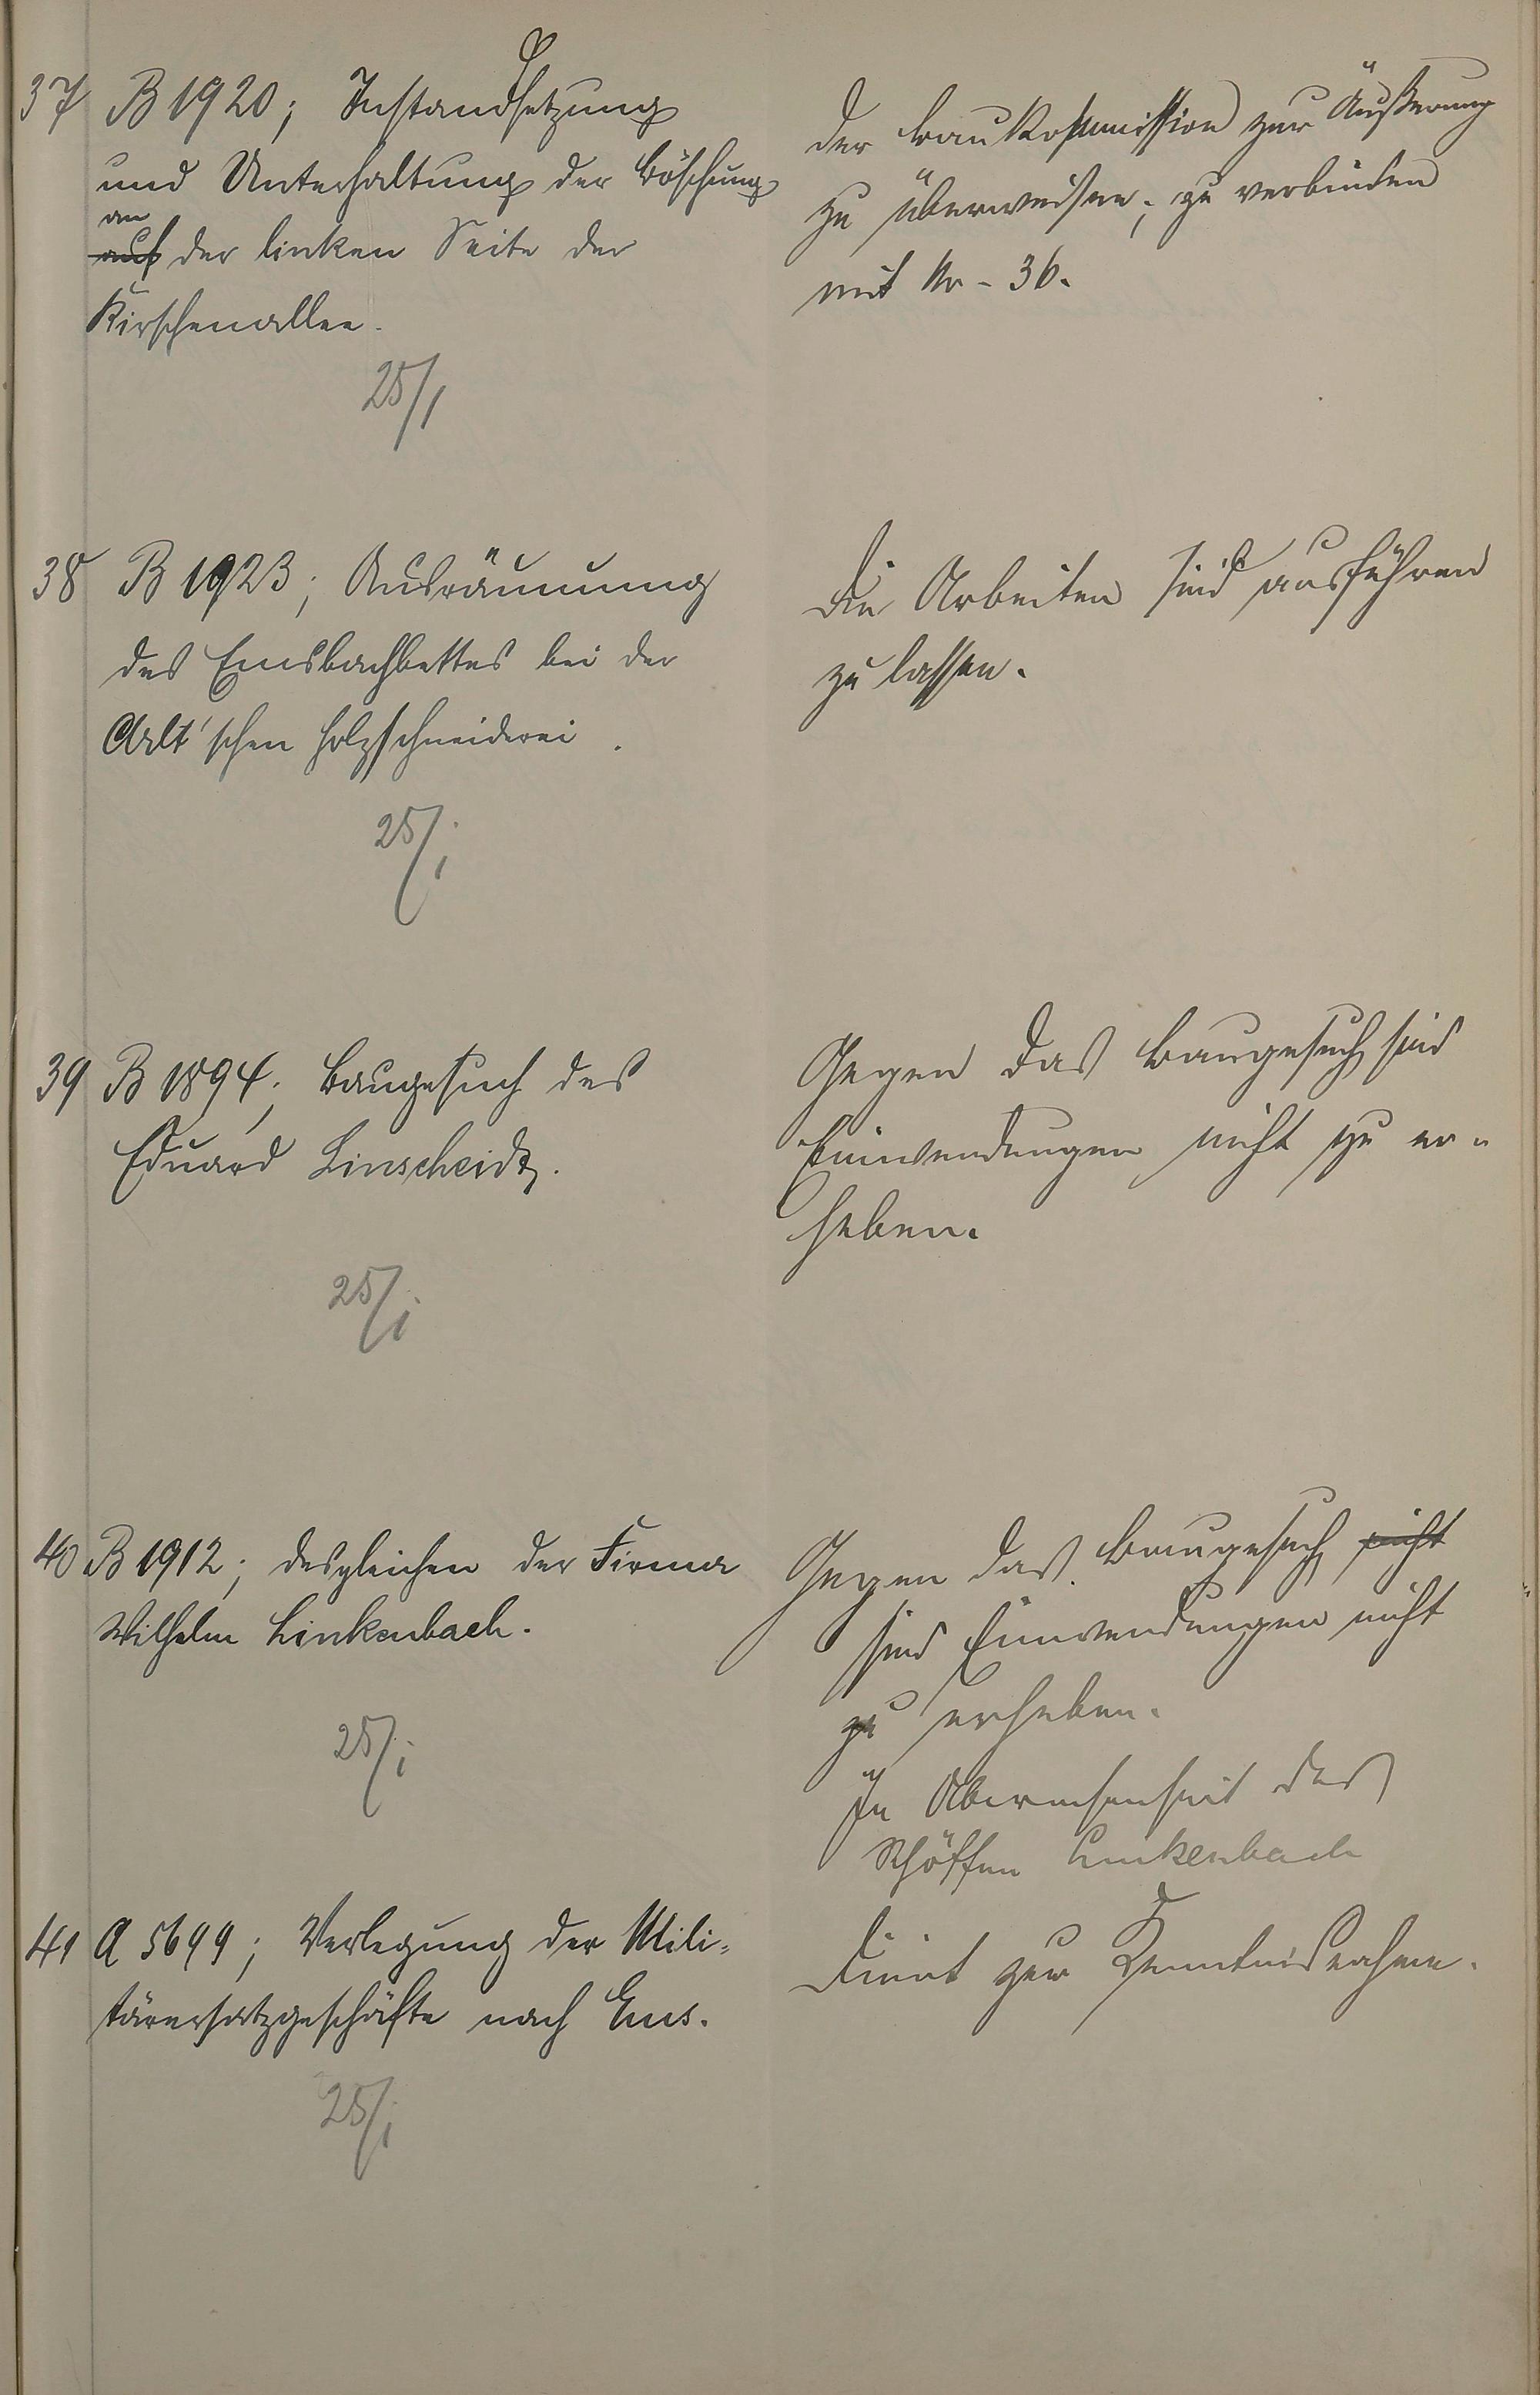 37 B 1920; Instandsetzung
und Unterhaltung der Böschung
an
auf der linken Seite der
Kirschenallee.
25/1
Der Baukommission zur Äußerung
zu überweisen; zu verbinden
mit No - 36.
38 B 1923; Ausräumung
des Emsbachbettes bei der
Arlt'schen Holzschneiderei.
25/1
Die Arbeiten sind ausführen
zu lassen.
39 B 1894; Baugesuch des
Eduard Linscheidt.
25/1
Gegen das Baugesuch sind
Einwendungen nicht zu er-
heben.
40 B 1912; desgleichen der Firma
Wilhelm Linkenbach.
25/1
Gegen das Baugesuch nicht
sind Einwendungen nicht
zu erheben.
In Abwesenheit des
Schöffen Linkenbach
41 A 5699; Verlegung der Mili-
tärersatzgeschäfte nach Ems.
25/1
Dient zur Kenntnisnahme.